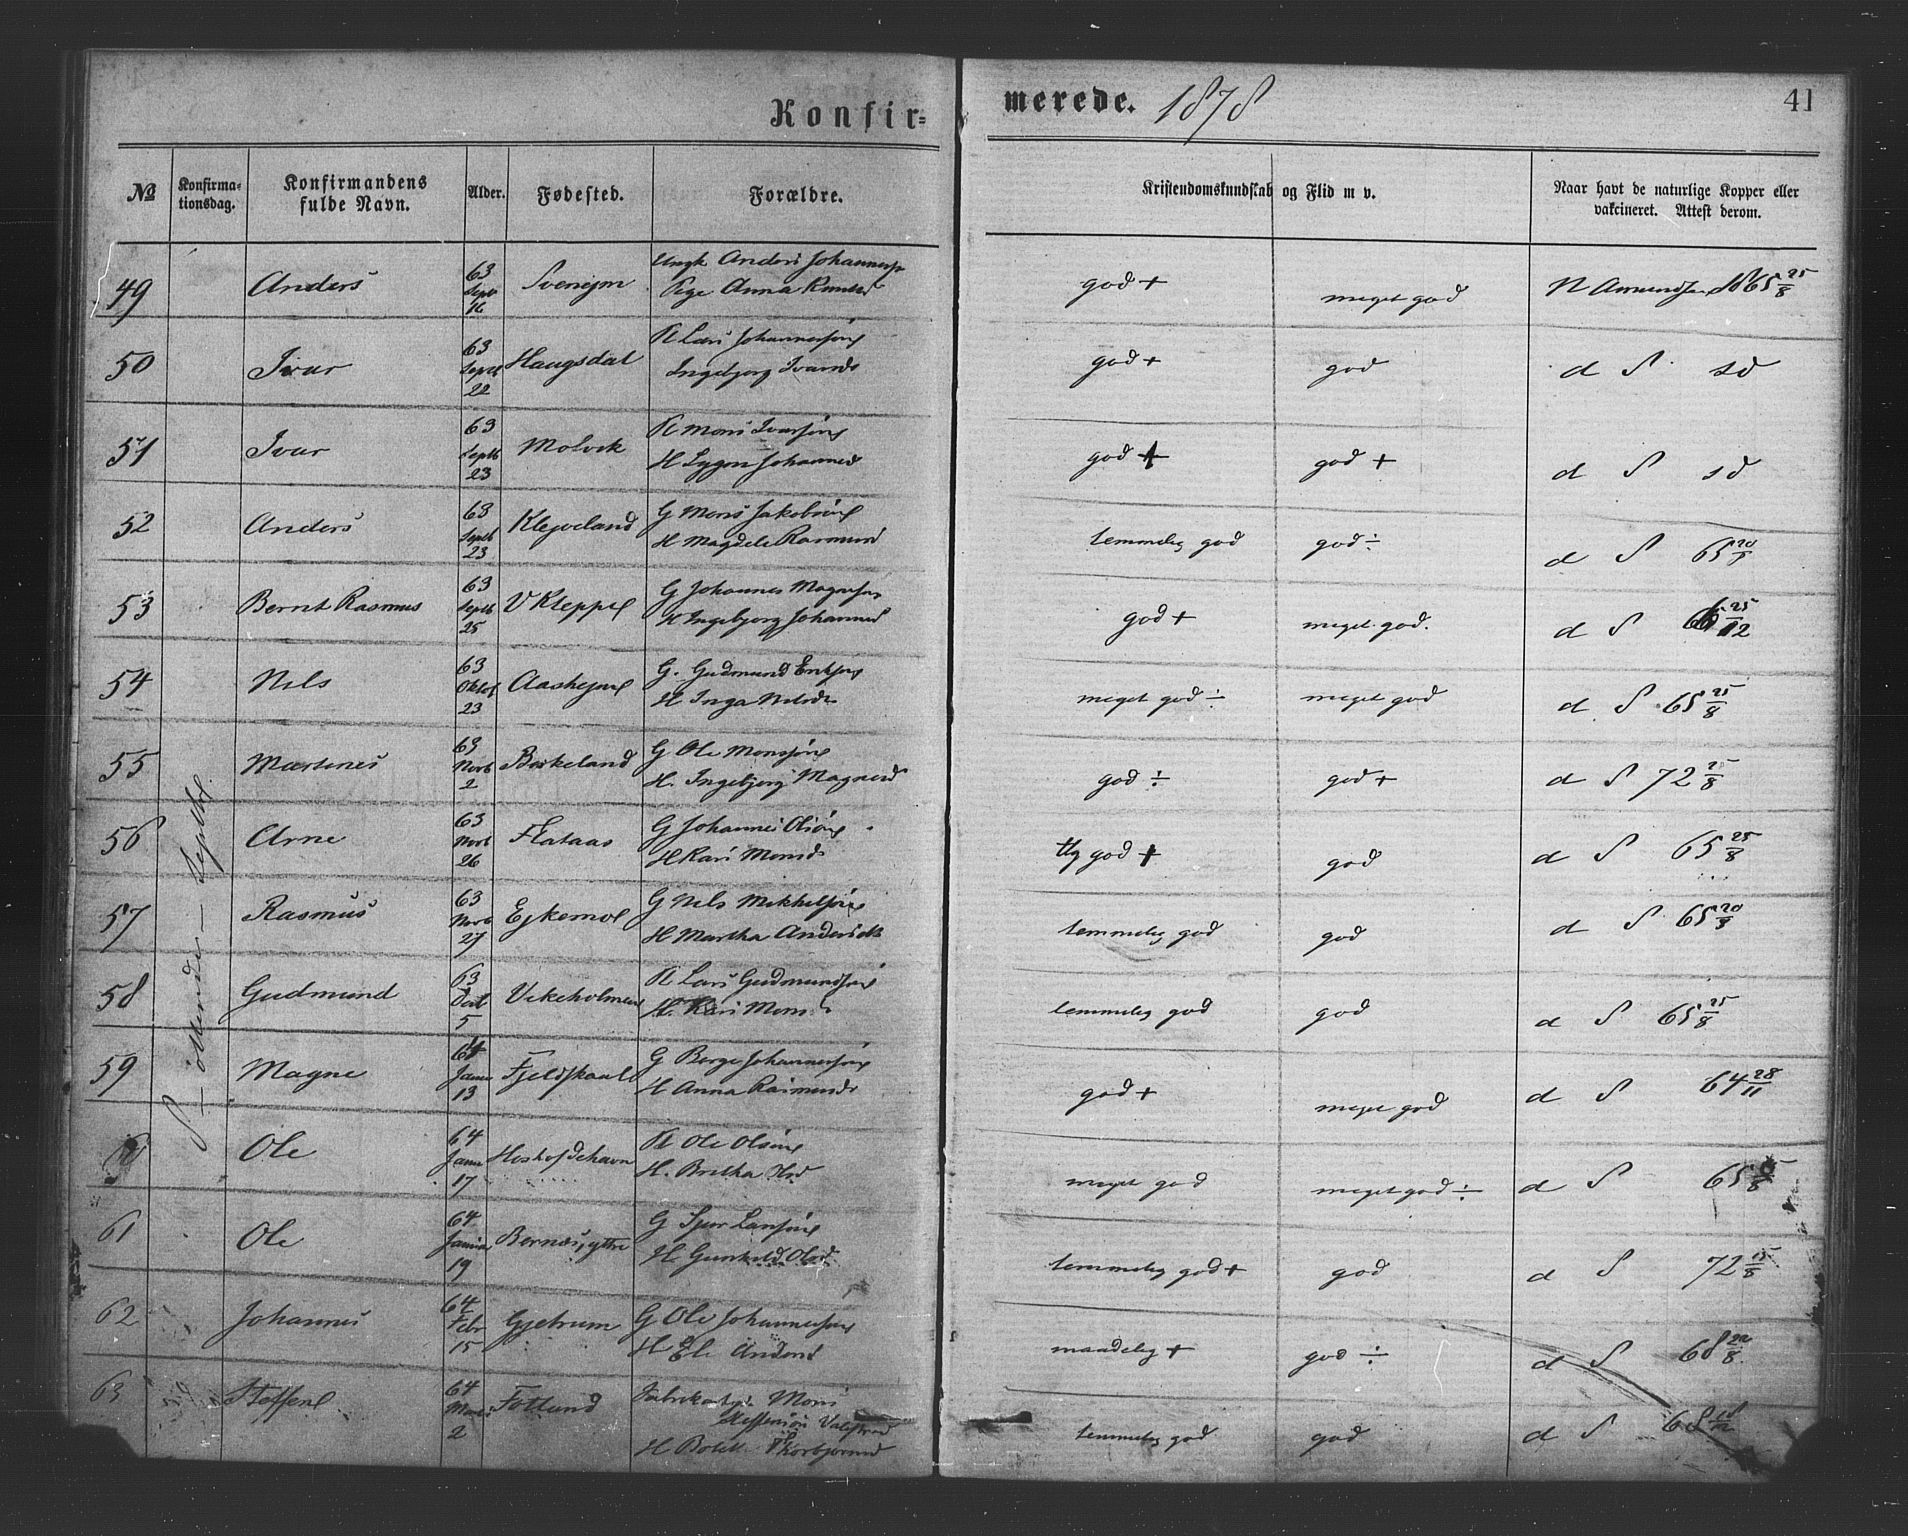 Konfir-
merede. 1878
41
№
Konfirma-
tionsdag.
Konfirmandens
fulde Navn.
Alder.
Fødested.
Forældre.
Kristendomskundskab og Flid m v.
Naar havt de naturlige Kopper eller
vakcineret. Attest derom.
49 Anders 63 Septb 16 Anders Johanness
Anna god + meget god N Amundsen 1865 25/8
50 Ivar 63 Septb 22 Haugsdal K Lars Johannessøn
Ingebjorg Ivarsd god + god d S sd
51 Ivar 63 Septb 23 Molvik K Mons Ivarsøn
H Johannesd god + god + d S sd
52 Anders 63 Septb 23 Klejveland G Mons Jakobsøn
H Magdele Rasmusd temmelig god god ÷ d S 65
53 Bernt Rasmus 63 Septb 25 V Kleppe G Johannes Magnesøn
H Ingebjorg Johannesd god + meget god. d S 66 25/12
54 Nils 63 Oktob 23 G. Gudmund Eriksøn
H Inga Nilsdr meget god ÷ meget god d S 65 25/8
55 Martines 63 Novb 2 Birkeland G Ole Monssøn
H. Ingebjorg Magnesd god ÷ god + d S 72 25/8
56 Arne 63 Novb 26 Flataas G Johannes Olsøn
H Kari Monsd tlg god + god d S 65 25/8
57 Rasmus 63 Novb 27 Ejkemo G Nils Mikkelsøn
H Martha Andersdr temmelig god god d S 65
58 Gudmund 63 5 Vikeholmen K Lars Gudmundsøn
H. Kari Mons temmelig god god d S 65 25/8
59 Magne 64 Janu 13 Fjeldskaal G Børge Johannessøn
H Anna Rasmusdr god + meget god d S 64 28/11
Ole 64 Janu 17 K Ole Olsøn
H. Britha Olsd meget god meget god ÷ d S 65
61 Ole 64 Janua 19 Bernæs, yttre G Larssøn
H Gunhild Olsd temmelig god + god d S 72
62 Johannes 64 Febr 15 Gjetrum G Ole Johannessøn
H Eli Andersd maadelig + god ÷ d S 68
63 Steffen 64 2 Mons
Steffensøn
H temmelig god god d S 68